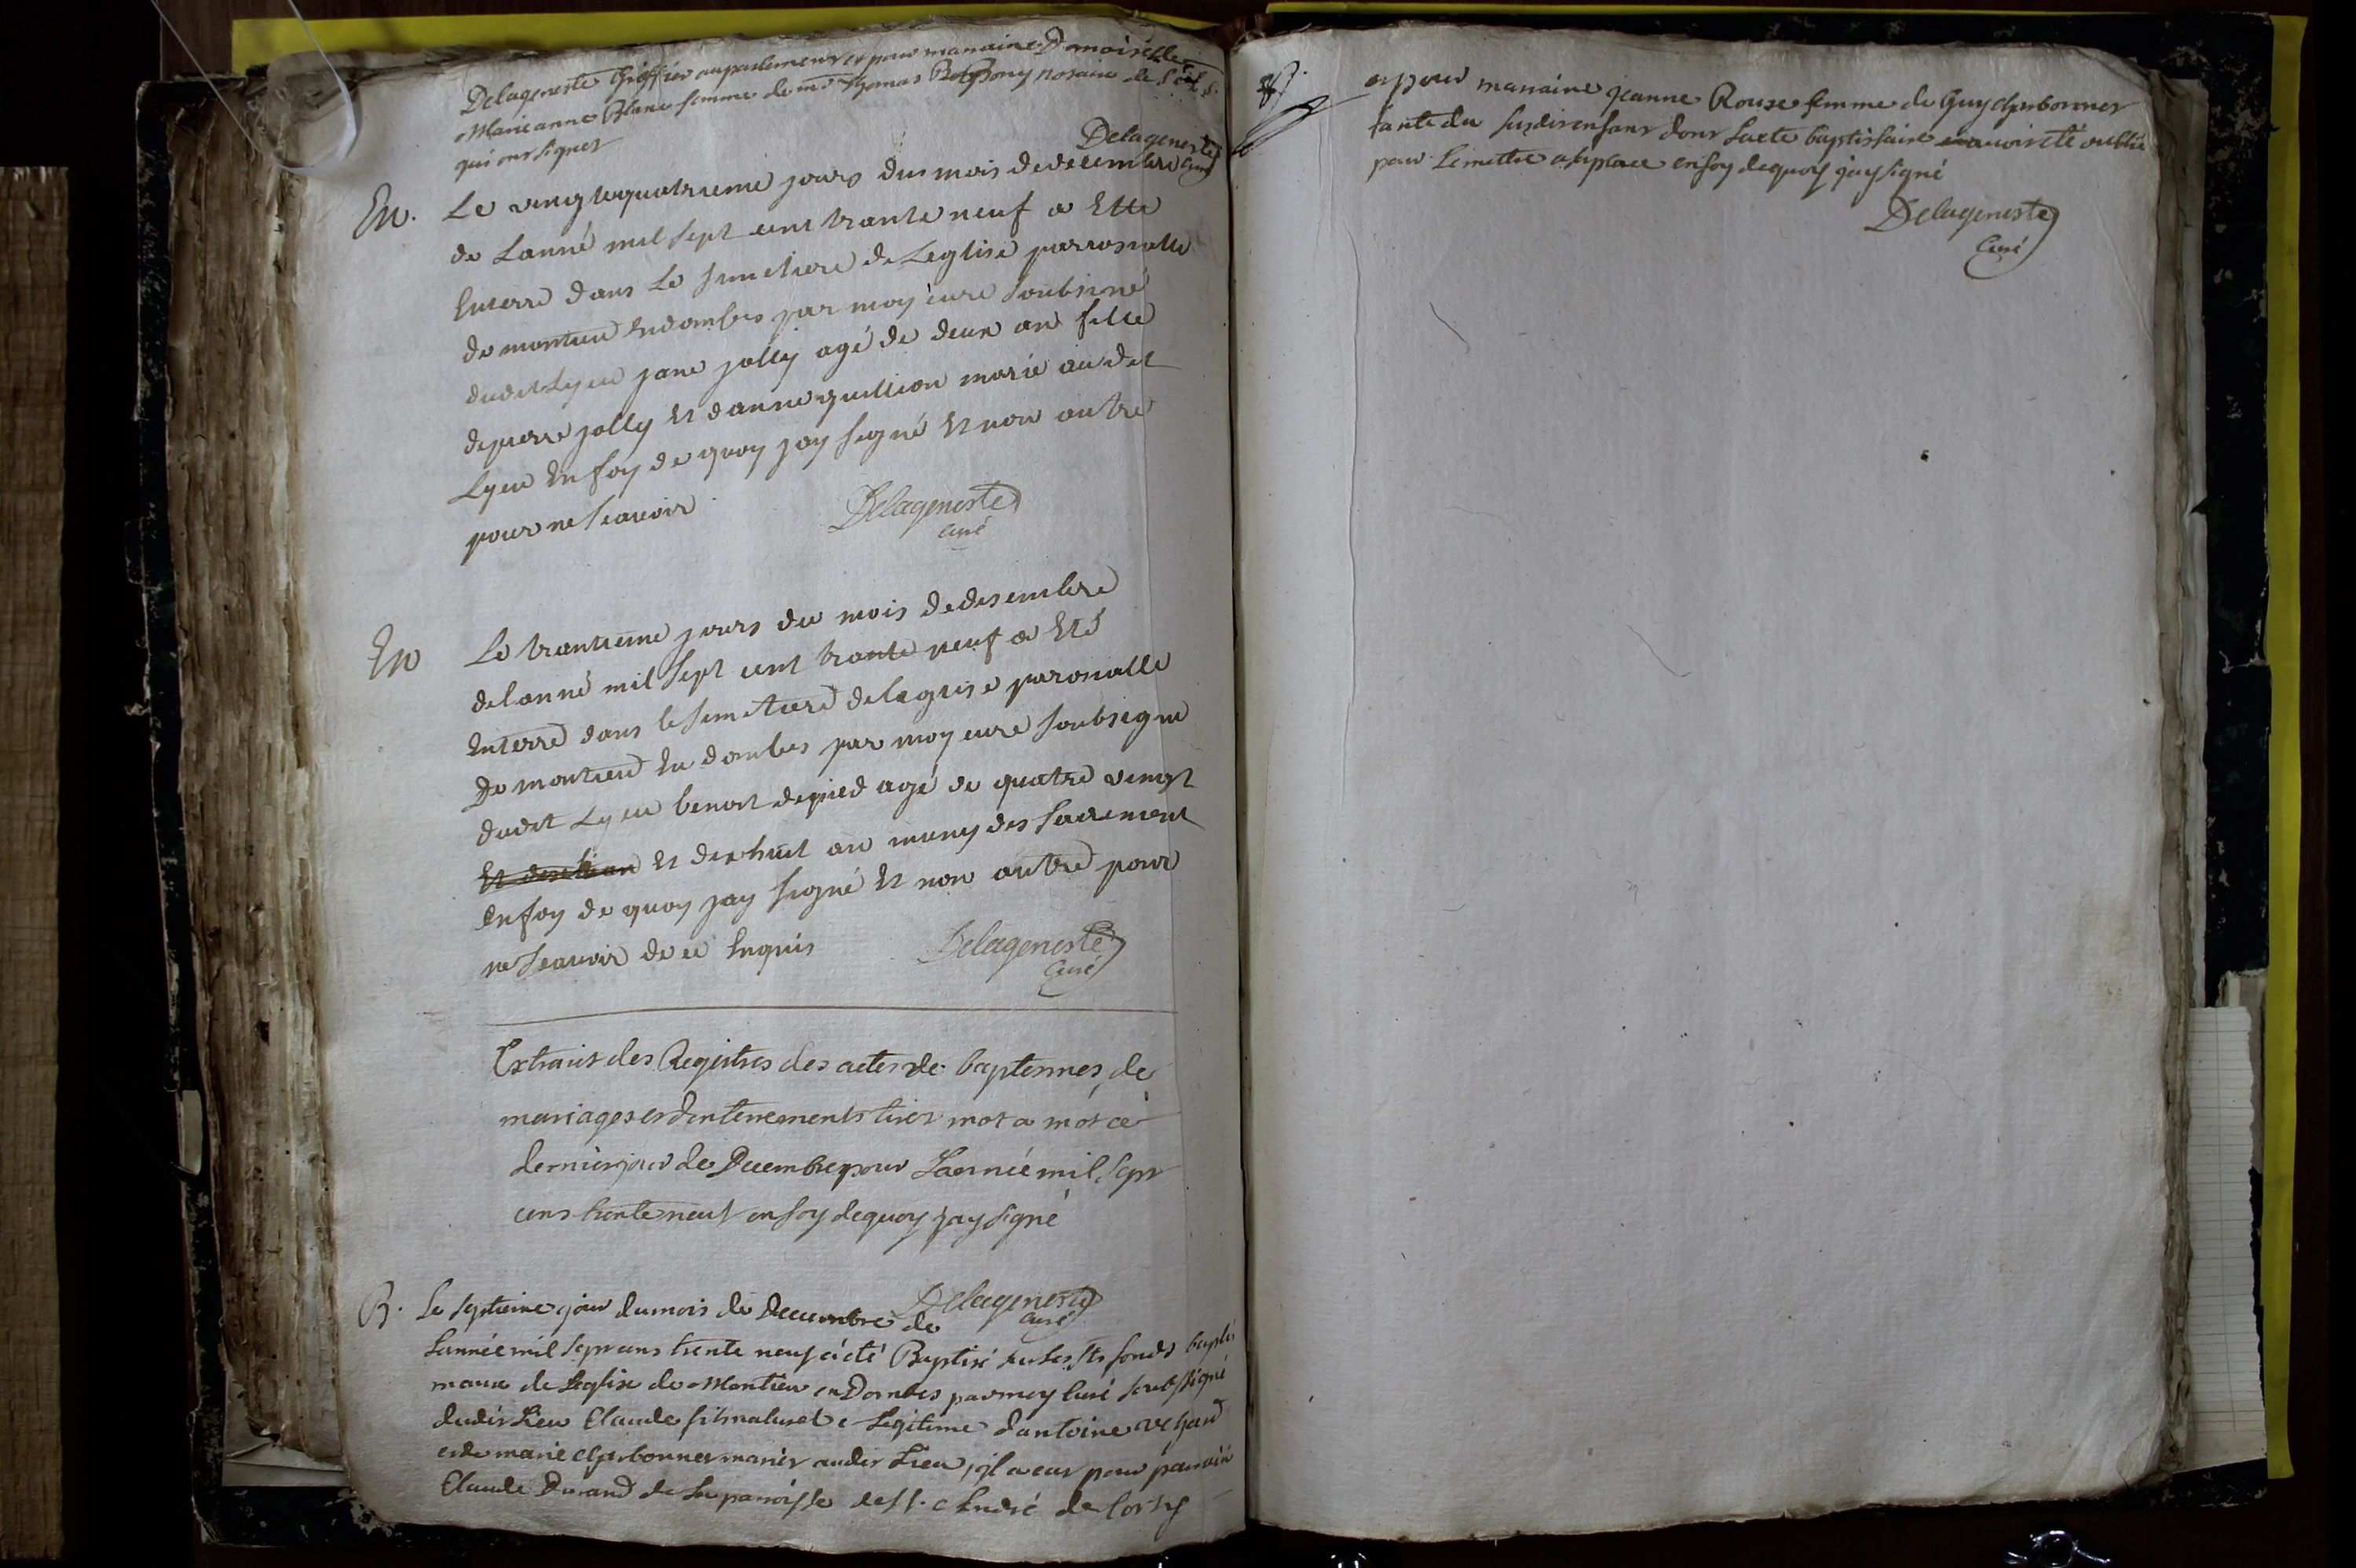 Delageneste Greffier au parlement et pour marraine Demoiselle
Marie anne Blanc femme de me Thomas notaire de
qui ont signer
Delageneste
curé
En. Le vingtequatrieme jours dus mois de decembre
de Lanné mil sept cent trante neuf a Etté
Enterré dans Le simetiere de Leglise parrosialle
de montieu Endombes par moy curé soubsiné
dudit Lyeu jane jolly agé de deux an fille
de pierre jolly Et danne quillion marié audit
Lyeu En foy de quoy jay signé Et non autre
pour ne scavoir
Delageneste
curé
En Le trantieme jours du mois de desembre
de lanné mil sept cent trante neuf a Eté
Enterré dans le simetiere de legise parosialle
de montieu En dombes par moy curé soubsigné
dudit Lyeu benoit depied agé de quatre vingt
Et dix huit an muny des sacrement
En foy de quoy jay signé Et non autre pour
ne scavoir de ce Enquis
Delageneste
Curé
Extrait des Registres des actes de baptesmes, de
mariages et denterrements tirer mot a mot ce
dernier jour de Decembre pour Lannée mil sept
cens trente neuf en foy dequoy jay signé
Delageneste
curé
B. Le septieme jour du mois de Decembre de
Lannée mil sept cens trente neuf a été Baptisé sur les sts fonds baptis
maux de Leglise de Montieu en Dombes par moy Curé soubssigné
dudit Lieu Claude fils naturel e Legitime dantoine
et de marie charbonner mariés audit Lieu, il a eut pour parrain
Claude Durand de La paroisse de st. André de Corsy
et pour marraine jeanne Rouse femme de Guy charbonner
tante du susdit enfant dont Lacte baptistaire avoit été oublié
pour Le mettre a sa place en foy dequoy jay signé
Delageneste
Curé